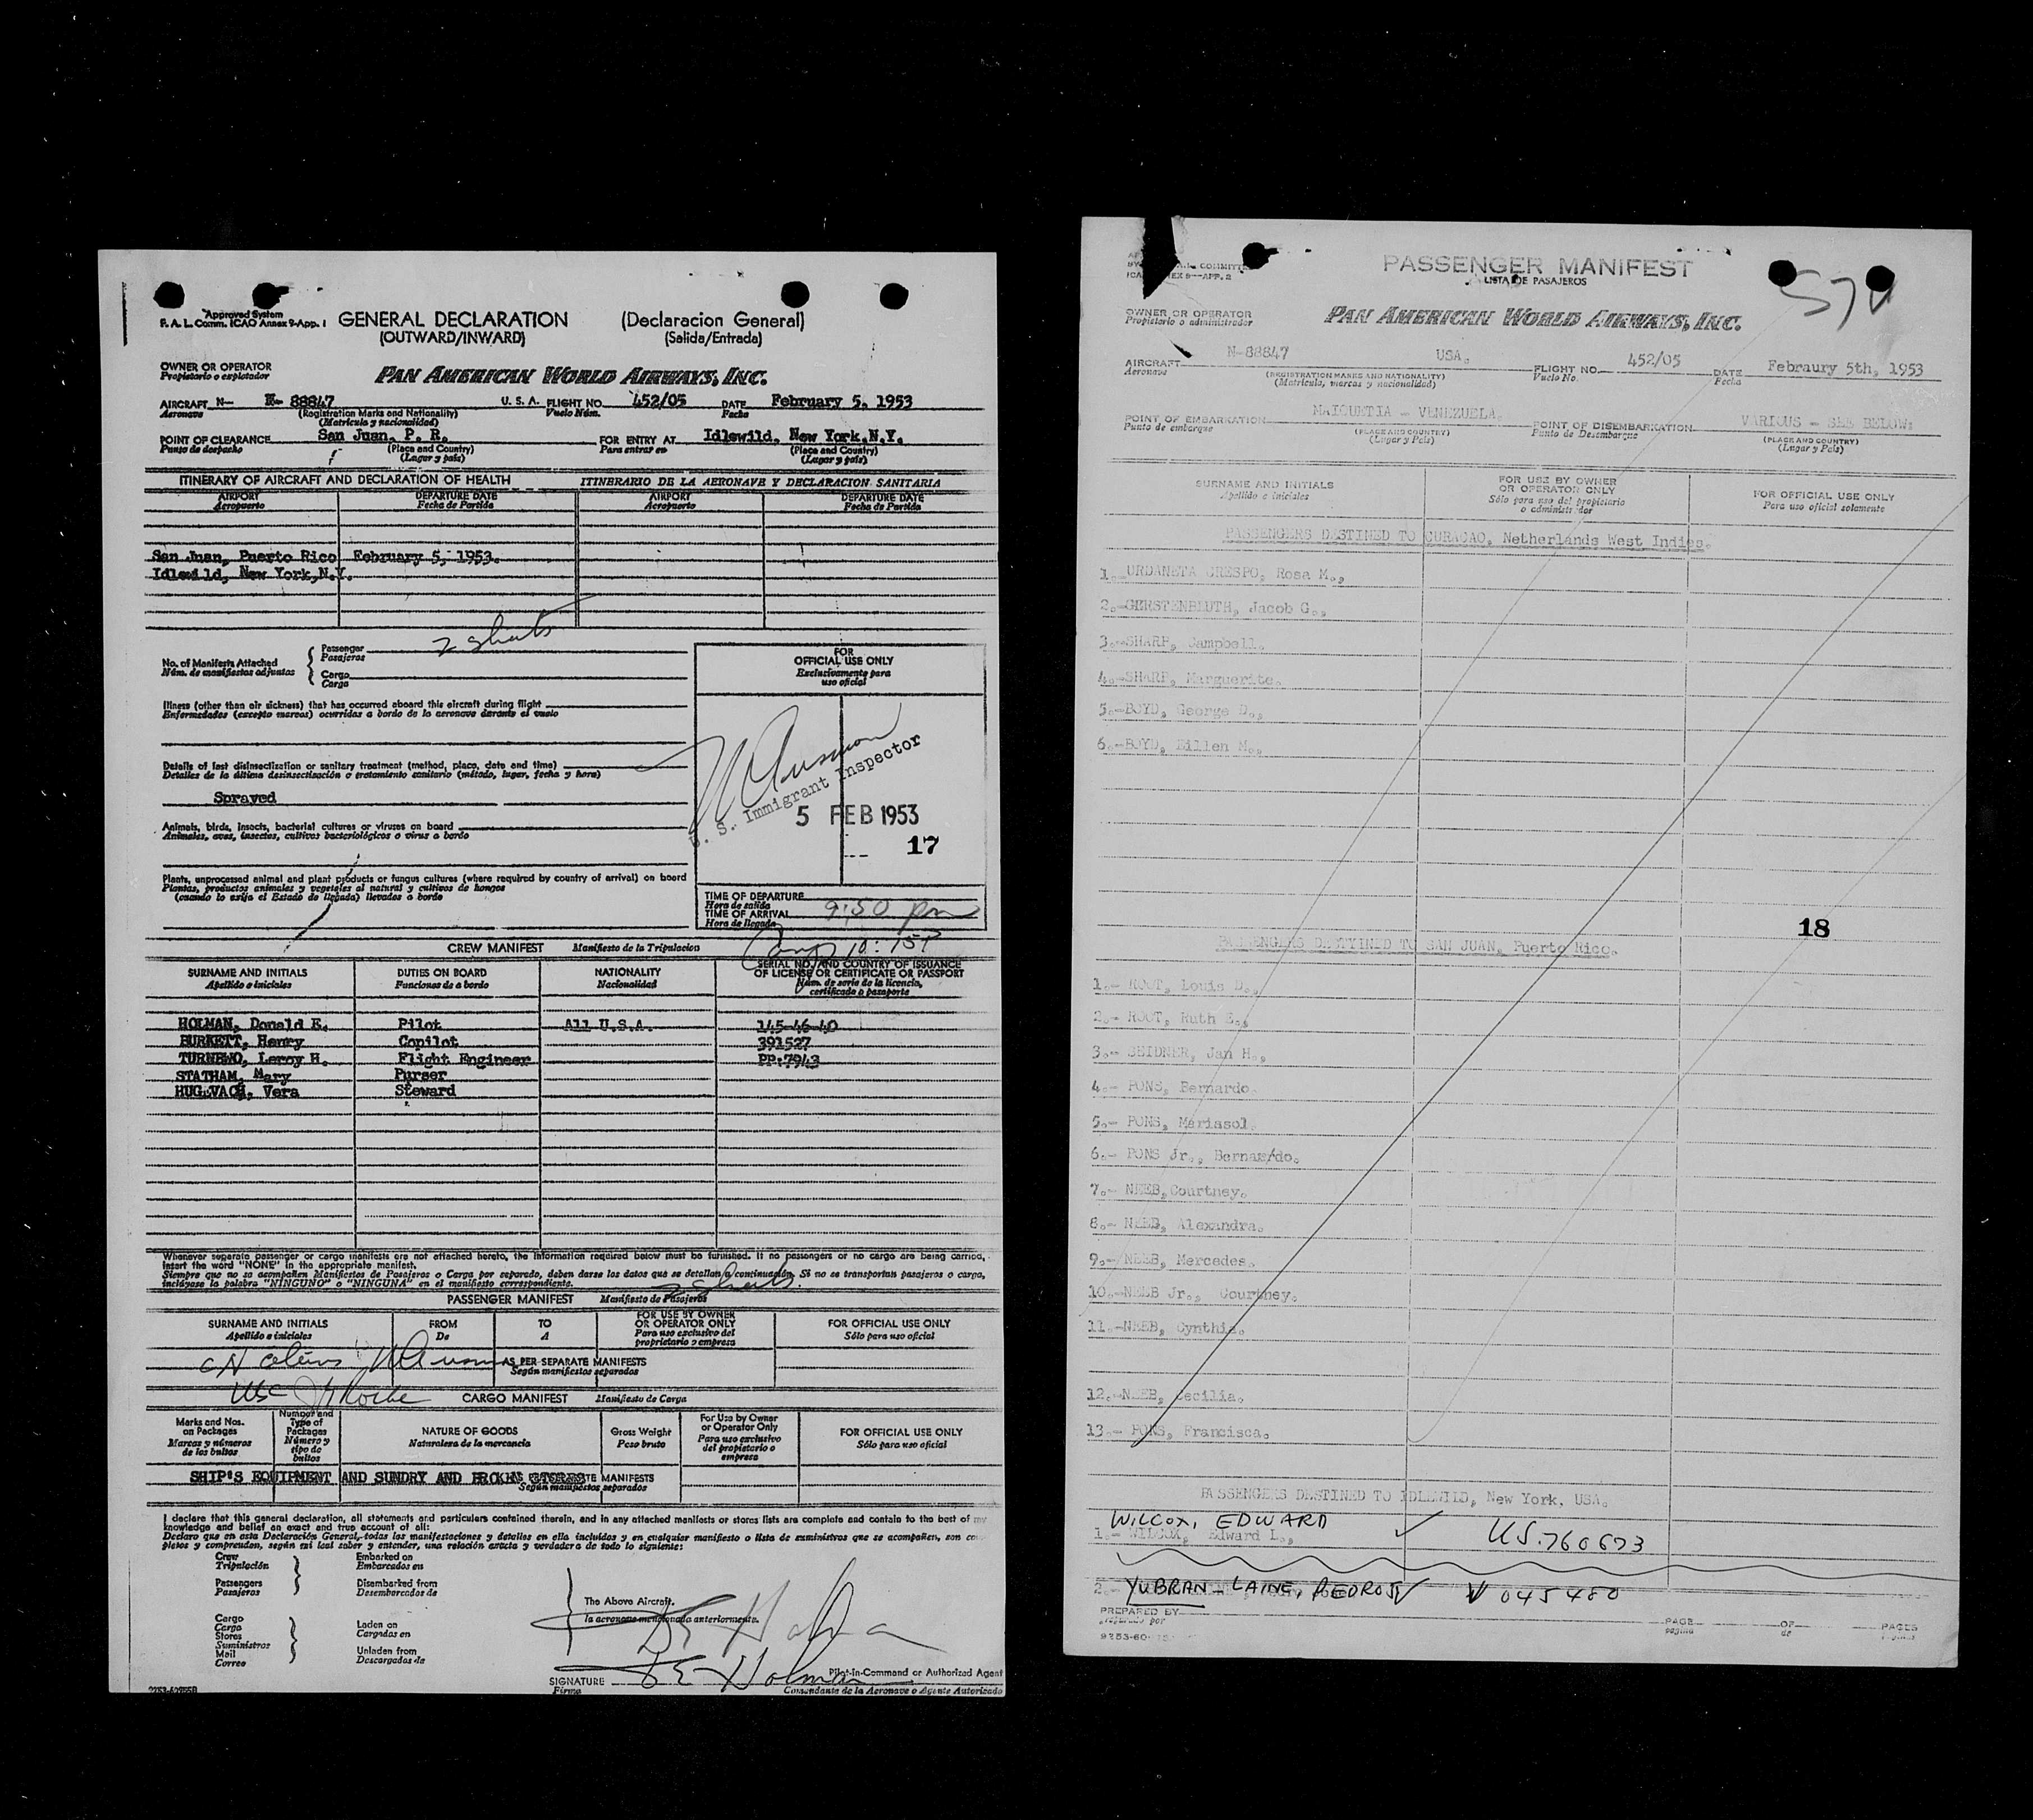 Approved System
F. A. L. Comm. ICAO Annex 9-App. 1
GENERAL DECLARATION (Declaracion General)
(OUTWARD/INWARD) (Salida/Entrada)
OWNER OR OPERATOR
Propietario o explotador
PAN AMERICAN WORLD AIRWAYS, INC.
AIRCRAFT N- 88847 U. S. A. FLIGHT NO. 452/05 DATE February 5, 1953
Aeronave (Registration Marks and Nationality) Vuelo Núm. Fecha
(Matrícula y nacionalidad)
POINT OF CLEARANCE San Juan, P. R. FOR ENTRY AT Idlewild, New York,N.Y.
Punto de despacho (Place and Country) Para entrar en (Place and Country)
(Lugar y país) (Lugar y país)
ITINERARY OF AIRCRAFT AND DECLARATION OF HEALTH ITINERARIO DE LA AERONAVE Y DECLARACION SANITARIA
AIRPORT DEPARTURE DATE AIRPORT DEPARTURE DATE
Aeropuerto Fecha de Partida Aeropuerto Fecha de Partida
San Juan, Puerto Rico February 5, 1953.
Idlewild, New York,N.Y.
No. of Manifests Attached
Núm. de manifiestos adjuntos
Passenger 2 sheets
Pasajeros
Cargo
Carga
Illness (other than air sickness) that has occurred aboard this aircraft during flight
Enfermedades (excepto mareos) ocurridas a bordo de la aeronave durante el vuelo
Details of last disinsectization or sanitary treatment (method, place, date and time)
Detalles de la última desinsectización o tratamiento sanitario (método, lugar, fecha y hora)
Sprayed
Animals, birds, insects, bacterial cultures or viruses on board
Animales, aves, insectos, cultivos bacteriológicos o virus a bordo
Plants, unprocessed animal and plant products or fungus cultures (where required by country of arrival) on board
Plantas, productos animales y vegetales al natural y cultivos de hongos
(cuando lo exija el Estado de llegada) llevados a bordo
FOR
OFFICIAL USE ONLY
Exclusivamente para
uso oficial
U. S. Immigrant Inspector
5 FEB 1953
17
TIME OF DEPARTURE
Hora de salida
TIME OF ARRIVAL 9:50 pm
Hora de llegada
10:15P
CREW MANIFEST Manifiesto de la Tripulacion
SURNAME AND INITIALS DUTIES ON BOARD NATIONALITY SERIAL NO. AND COUNTRY OF ISSUANCE
OF LICENSE OR CERTIFICATE OR PASSPORT
Apellido e iniciales Funciones de a bordo Nacionalidad Núm. de serie de la licencia,
certificado o pasaporte
HOLMAN, Donald E. Pilot All U.S.A. 145-46-40
BURKETT, Henry Copilot 391527
TURNBWO, Leroy H. Flight Engineer PP:7943
STATHAM, Mary Purser
HUGEVACH, Vera Steward
Whenever separate passenger or cargo manifests are not attached hereto, the information required below must be furnished. It no passengers or no cargo are being carried,
insert the word "NONE" in the appropriate manifest.
Siempre que no se acompañen Manifiestos de Pasajeros o Carga por separado, deben darse los datos que se detallan a continuación. Si no se transportan pasajeros o carga,
inclúyase la palabra "NINGUNO" o "NINGUNA" en el manifiesto correspondiente.
2 sheets.
PASSENGER MANIFEST Manifiesto de Pasajeros
SURNAME AND INITIALS FROM TO FOR USE BY OWNER
OR OPERATOR ONLY FOR OFFICIAL USE ONLY
Apellido e iniciales De A Para uso exclusivo del
propietario o empresa Sólo para uso oficial
AS PER SEPARATE MANIFESTS
Según manifiestos separados
CARGO MANIFEST Manifiesto de Carga
Marks and Nos.
on Packages
Marcas y números
de los bultos
Number and
Type of
Packages
Número y
tipo de
bultos
NATURE OF GOODS
Naturaleza de la mercancía
Gross Weight
Peso bruto
For Use by Owner
or Operator Only
Para uso exclusivo
del propietario o
empresa
FOR OFFICIAL USE ONLY
Sólo para uso oficial
SHIP'S EQUIPMENT AND SUNDRY AND BROKEN STORES MANIFESTS
Según manifiestos separados
I declare that this general declaration, all statements and particulars contained therein, and in any attached manifests or stores lists are complete and contain to the best of my
knowledge and belief an exact and true account of all:
Declaro que en esta Declaración General, todas las manifestaciones y detalles en ella incluidos y en cualquier manifiesto o lista de suministros que se acompañen, son com
pletos y comprenden, según mi leal saber y entender, una relación exacta y verdadera de todo lo siguiente:
Crew Embarked on
Tripulación Embarcados en
Passengers Disembarked from
Pasajeros Desembarcados de
The Above Aircraft.
la aeronave mencionada anteriormente.
Cargo Laden on
Carga Cargados en
Stores
Suministros
Mail Unladen from
Correo Descargados de
D E Holman
SIGNATURE D E Holman Pilot-in-Command or Authorized Agent
Firma Comandante de la Aeronave o Agente Autorizado
PASSENGER MANIFEST
LISTA DE PASAJEROS
OWNER OR OPERATOR
Propietario o administrador
PAN AMERICAN WORLD AIRWAYS, INC.
AIRCRAFT N-88847 USA. FLIGHT NO. 452/05 DATE Febraury 5th, 1953
Aeronave (REGISTRATION MARKS AND NATIONALITY) Vuelo No. Fecha
(Matrícula, marcas y nacionalidad)
POINT OF EMBARKATION MAIQUETIA - VENEZUELA. POINT OF DISEMBARKATION VARIOUS - SEE BELOW:
Punto de embarque (PLACE AND COUNTRY) Punto de Desembarque (PLACE AND COUNTRY)
(Lugar y País) (Lugar y País)
SURNAME AND INITIALS FOR USE BY OWNER
OR OPERATOR ONLY FOR OFFICIAL USE ONLY
Apellido e iniciales Sólo para uso del propietario
o administrador Para uso oficial solamente
PASSENGERS DESTINED TO CURACAO, Netherlands West Indies.
1.-URDANETA CRESPO, Rosa M.,
2.-GERSTENBLUTH, Jacob G.,
3.-SHARP, Campbell.
4.-SHARP, Marguerite.
5.-BOYD, George D.,
6.-BOYD, Eillen M.,
18
PASSENGERS DESTYINED TO SAN JUAN, Puerto Rico.
1.- ROOT, Louis D.,
2.- ROOT, Ruth E.,
3.- SEIDNER, Jan H.,
4.- PONS, Bernardo.
5.- PONS, Mariasol.
6.- PONS Jr., Bernardo.
7.- NEEB,Courtney.
8.- NEEB, Alexandra.
9.- NEEB, Mercedes.
10.-NEEB Jr., Courtney.
11.-NEEB, Cynthia.
12.-NEEB, Cecilia.
13.- PONS, Francisca.
PASSENGERS DESTINED TO IDLEWILD, New York, USA.
WILCOX, EDWARD
1.-WILCOX, Edward L., US.760673
2.- YUBRAN-LAINE, PEDRO V 045480
PREPARED BY PAGE OF PAGES
preparado por página de